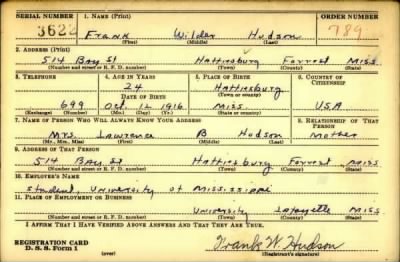 SERIAL NUMBER 1. NAME (Print) ORDER NUMBER
3622 Frank Wilder Hudson 789
(First) (Middle) (Last)
2. ADDRESS (Print)
514 Bay St Hattiesburg Forrest Miss
(Number and street or R. F. D. number) (Town) (County) (State)
3. TELEPHONE 4. AGE IN YEARS 5. PLACE OF BIRTH 6. COUNTRY OF CITIZENSHIP
24 Hattiesburg
DATE OF BIRTH (Town or county)
699 Oct. 12 1916 Miss USA
(Exchange) (Number) (Mo.) (Day) (Yr.) (State or country)
7. NAME OF PERSON WHO WILL ALWAYS KNOW YOUR ADDRESS 8. RELATIONSHIP OF THAT PERSON
Mrs. Lawrence B Hudson Mother
(Mr., Mrs., Miss) (First) (Middle) (Last)
9. ADDRESS OF THAT PERSON
514 Bay St Hattiesburg Forrest Miss
(Number and street or R. F. D. number) (Town) (County) (State)
10. EMPLOYER'S NAME
Student, University of Mississippi
11. PLACE OF EMPLOYMENT OR BUSINESS
University Lafayette Miss
(Number and street or R. F. D. number) (Town) (County) (State)
I AFFIRM THAT I HAVE VERIFIED ABOVE ANSWERS AND THAT THEY ARE TRUE.
REGISTRATION CARD Frank W. Hudson
D. S. S. Form 1 (over) (Registrant's signature)